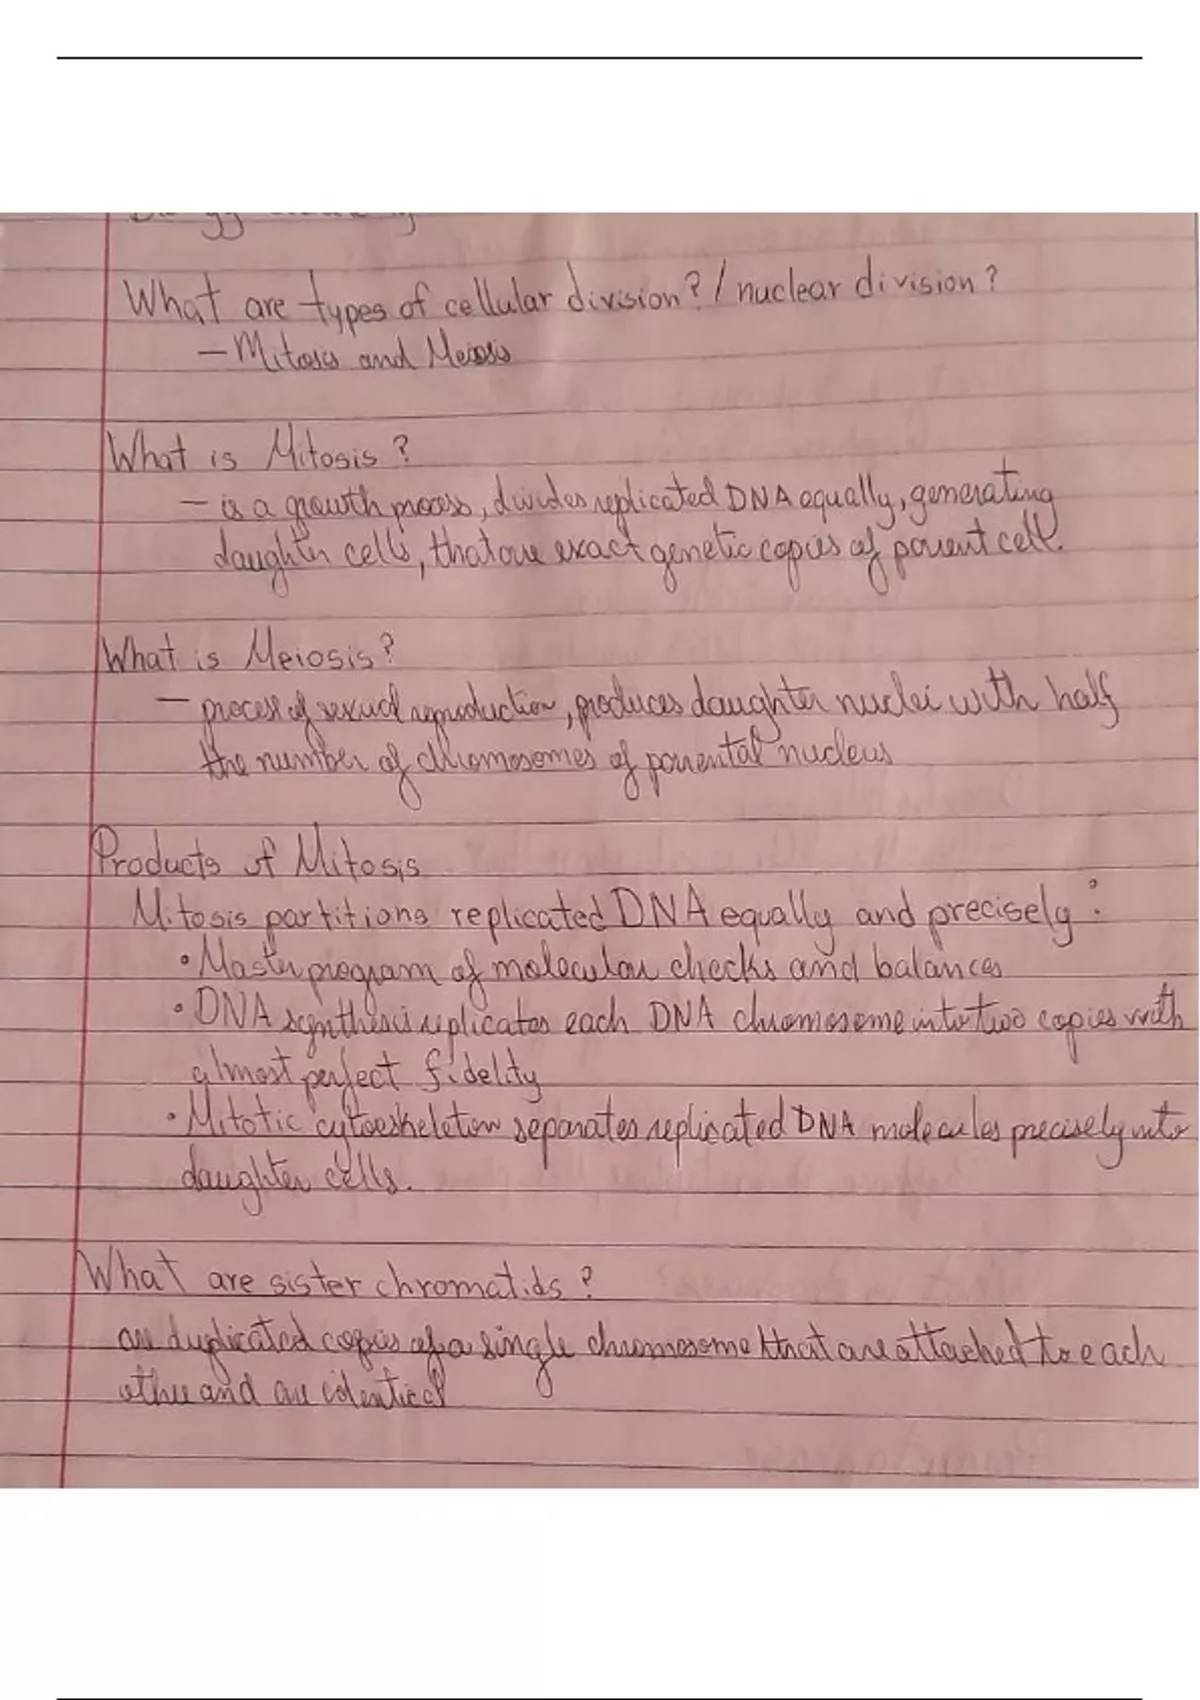 What are types of cellular division? / nuclear division?
- Mitosis and Meiosis
What is Mitosis?
- is a growth process, divides replicated DNA equally, generating
daughter cells, that are exact genetic copies of parent cell.
What is Meiosis?
- process of sexual reproduction, produces daughter nuclei with half
the number of chromosomes of parental nucleus
Products of Mitosis
Mitosis partitions replicated DNA equally and precisely:
• Master program of molecular checks and balances
• DNA synthesis replicates each DNA chromosome into two copies with
almost perfect fidelity
• Mitotic cytoeskeleton separates replicated DNA molecules precisely into
daughter cells.
What are sister chromatids?
are duplicated copies of a single chromosome that are attached to each
other and are identical